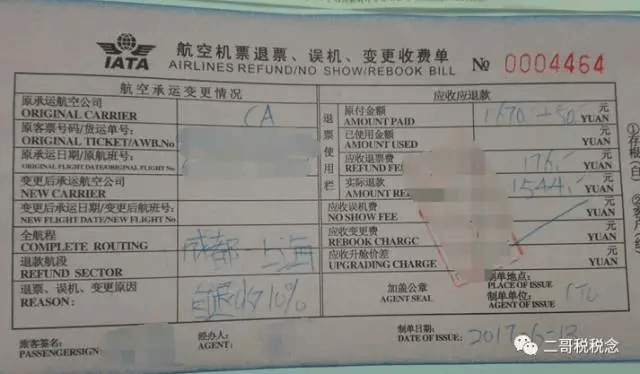 IATA
航空机票退票、误机、变更收费单
AIRLINES REFUND/NO SHOW/REBOOK BILL
№ 0004464
航空承运变更情况
原承运航空公司
ORIGINAL CARRIER
CA
原客票号码/货运单号:
ORIGINAL TICKET/AWB.No
原承运日期/原航班号:
ORIGINAL FLIGHT DATE/ORIGINAL FLIGHT No
变更后承运航空公司
NEW CARRIER
变更后承运日期/变更后航班号:
NEW FLIGHT DATE/NEW FLIGHT No
全航程
COMPLETE ROUTING
成都—上海
退款航段
REFUND SECTOR
退票、误机、变更原因
REASON:
自退收10%
退票使用栏
应收应退款
原付金额 元
AMOUNT PAID 1670+50 YUAN
已使用金额 元
AMOUNT USED YUAN
应收退票费 元
REFUND FEE 176 YUAN
实际退款 元
AMOUNT RE 1544 YUAN
应收误机费 元
NO SHOW FEE YUAN
应收变更费 元
REBOOK CHARGC YUAN
应收升舱价差 元
UPGRADING CHARGE YUAN
加盖公章
AGENT SEAL
制单地点:
PLACE OF ISSUE
制单单位:
AGENT OF ISSUE
旅客签名:
PASSENGERSIGN
经办人:
AGENT
制单日期:
DATE OF ISSUE: 2017-6-13
①存根(白)
二哥税税念